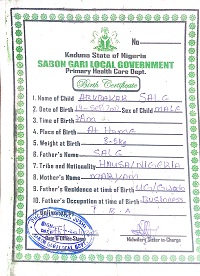 Kaduna State of Nigeria
SABON GARI LOCAL GOVERNMENT
Primary Health Care Dept.
Birth Certificate
1. Name of Child ABUBAKAR SALE
2. Date of Birth Sex of Child MALE
3. Time of
4. Place of Birth At Home
5. Weight at Birth 3.5kg
6. Father's Name SALE
7. Tribe and Nationality HAUSA/NIGERIA
8. Mother's Name MARYAM
9. Father's Residence at time of Birth
10. Father's Occupation at time of Birth Business
Midwifery Sister-in-Charge